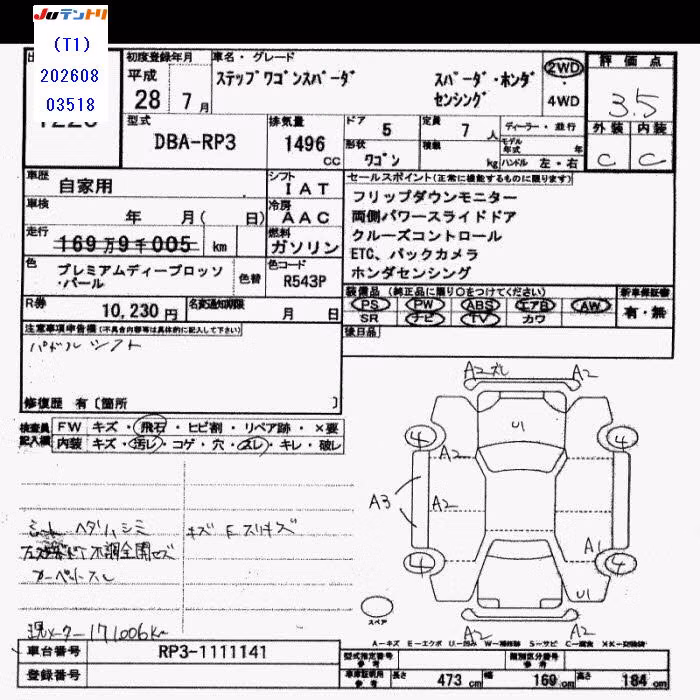 JUテントリ
(T1)
202608
03518
初度登録年月
平成
28 7月
車名・グレード
ステップワゴンスパーダ
スパーダ・ホンダ
センシング
2WD
・
4WD
評価点
3.5
外装 内装
C C
型式
DBA-RP3
排気量
1496
CC
ドア
5
定員
7 人
形状
ワゴン
積載
kg
ディーラー・並行
モデル年式 年
ハンドル 左・右
車歴
自家用
シフト
IAT
車検
年 月( 日)
冷房
AAC
走行
169万9千005 km
燃料
ガソリン
色
プレミアムディープロッソ
・パール
色替
色コード
R543P
R券
10,230円
名変通知期限
月 日
セールスポイント(正常に機能するものに限ります)
フリップダウンモニター
両側パワースライドドア
クルーズコントロール
ETC、バックカメラ
ホンダセンシング
装備品(純正品に限り○をつけてください)
PS PW ABS エアB AW
SR ナビ TV カワ
新車保証書
有・無
後日品
注意事項申告欄(不具合内容等は具体的に記入して下さい)
パドルシフト
修復歴 有〔箇所 〕
検査員
記入欄
FW キズ・飛石・ヒビ割・リペア跡・×要
内装 キズ・汚レ・コゲ・穴・スレ・キレ・破レ
シート ヘタリ、シミ
キズ
スリキズ
不調全開せズ
カーペットスレ
現メーター171006km
A2 ズレ A2
U1
4 4
A2
A3 A2
A1
4 4
U1
A2
スペア
A-キズ E-エクボ U-凹み W-補修跡 S-サビ C-腐食
車台番号 RP3-1111141
登録番号
型式指定番号
参考
類別区分番号
参考
車庫証明用
参考
長さ 473 cm 幅 169 cm 高さ 184 cm